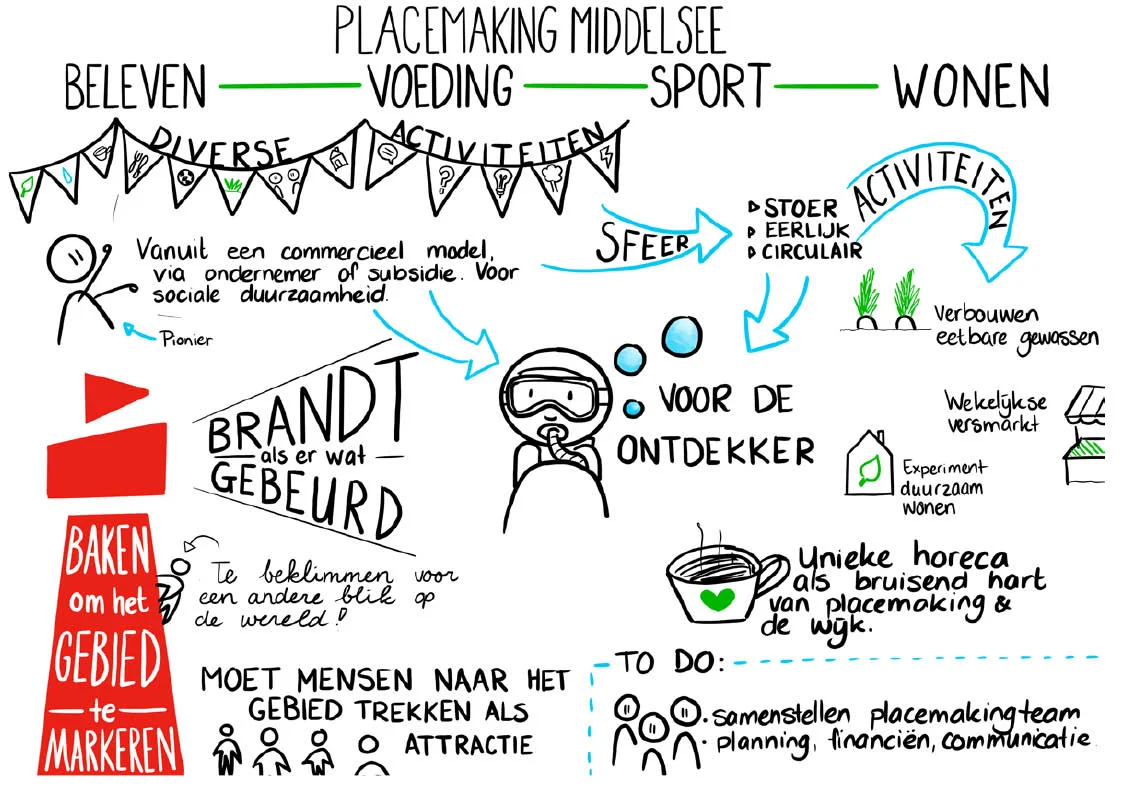 PLACEMAKING MIDDELSEE
BELEVEN — VOEDING — SPORT — WONEN
DIVERSE ACTIVITEITEN
?
Vanuit een commercieel model,
via ondernemer of subsidie. Voor
sociale duurzaamheid.
Pionier
SFEER
STOER
EERLIJK
CIRCULAIR
ACTIVITEITEN
Verbouwen
eetbare gewassen
Wekelijkse
versmarkt
Experiment
duurzaam
wonen
VOOR DE
ONTDEKKER
BRANDT
als er wat
GEBEURD
BAKEN
om het
GEBIED
te
MARKEREN
Te beklimmen voor
een andere blik op
de wereld!
Unieke horeca
als bruisend hart
van placemaking &
de wijk.
MOET MENSEN NAAR HET
GEBIED TREKKEN ALS
ATTRACTIE
TO DO:
• samenstellen placemakingteam
• planning, financiën, communicatie.